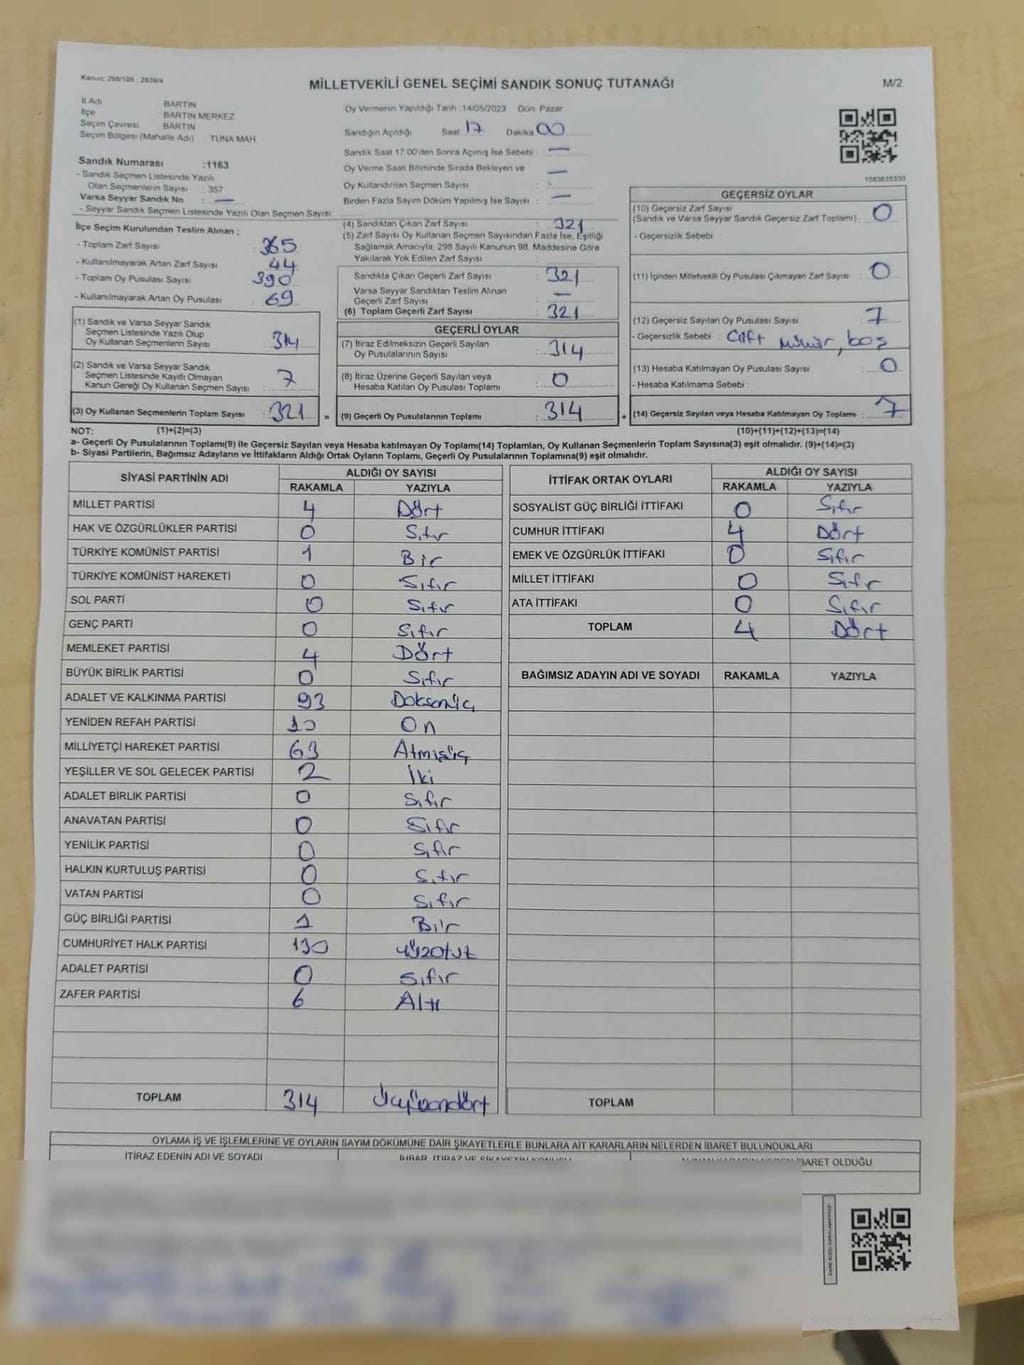 Kanun; 298/105 , 2839/4
MİLLETVEKİLİ GENEL SEÇİMİ SANDIK SONUÇ TUTANAĞI
M/2
İl Adı BARTIN
İlçe : BARTIN MERKEZ
Seçim Çevresi BARTIN
Seçim Bölgesi (Mahalle Adı) : TUNA MAH
Oy Vermenin Yapıldığı Tarih : 14/05/2023 Gün: Pazar
Sandığın Açıldığı Saat 17 Dakika 00
Sandık Saat 17:00'den Sonra Açımış İse Sebebi : —
Oy Verme Saati Bitiminde Sırada Bekleyen ve
Oy Kullandırılan Seçmen Sayısı : —
Birden Fazla Sayım Döküm Yapılmış İse Sayısı : —
1083835330
Sandık Numarası :1163
- Sandık Seçmen Listesinde Yazılı
Olan Seçmenlerin Sayısı : 357
Varsa Seyyar Sandık No : —
- Seyyar Sandık Seçmen Listesinde Yazılı Olan Seçmen Sayısı:
İlçe Seçim Kurulundan Teslim Alınan ;
- Toplam Zarf Sayısı : 365
- Kullanılmayarak Artan Zarf Sayısı : 44
- Toplam Oy Pusulası Sayısı : 390
- Kullanılmayarak Artan Oy Pusulası : 69
(1) Sandık ve Varsa Seyyar Sandık
Seçmen Listesinde Yazılı Olup
Oy Kullanan Seçmenlerin Sayısı : 314
(2) Sandık ve Varsa Seyyar Sandık
Seçmen Listesinde Kayıtlı Olmayan
Kanun Gereği Oy Kullanan Seçmen Sayısı : 7
(3) Oy Kullanan Seçmenlerin Toplam Sayısı : 321 =
(4) Sandıktan Çıkan Zarf Sayısı : 321
(5) Zarf Sayısı Oy Kullanan Seçmen Sayısından Fazla İse, Eşitliği
Sağlamak Amacıyla; 298 Sayılı Kanunun 98. Maddesine Göre
Yakılarak Yok Edilen Zarf Sayısı :
Sandıkta Çıkan Geçerli Zarf Sayısı : 321
Varsa Seyyar Sandıktan Teslim Alınan
Geçerli Zarf Sayısı : —
(6) Toplam Geçerli Zarf Sayısı : 321
GEÇERLİ OYLAR
(7) İtiraz Edilmeksizin Geçerli Sayılan
Oy Pusulalarının Sayısı : 314
(8) İtiraz Üzerine Geçerli Sayılan veya
Hesaba Katılan Oy Pusulası Toplamı : 0
(9) Geçerli Oy Pusulalarının Toplamı : 314 +
GEÇERSİZ OYLAR
(10) Geçersiz Zarf Sayısı
(Sandık ve Varsa Seyyar Sandık Geçersiz Zarf Toplamı) : 0
- Geçersizlik Sebebi :
(11) İçinden Milletvekili Oy Pusulası Çıkmayan Zarf Sayısı : 0
(12) Geçersiz Sayılan Oy Pusulası Sayısı : 7
- Geçersizlik Sebebi : Çift mühür, boş
(13) Hesaba Katılmayan Oy Pusulası Sayısı : 0
- Hesaba Katılmama Sebebi :
(14) Geçersiz Sayılan veya Hesaba Katılmayan Oy Toplamı : 7
NOT: (1)+(2)=(3) (10)+(11)+(12)+(13)=(14)
a- Geçerli Oy Pusulalarının Toplamı(9) ile Geçersiz Sayılan veya Hesaba katılmayan Oy Toplamı(14) Toplamları, Oy Kullanan Seçmenlerin Toplam Sayısına(3) eşit olmalıdır. (9)+(14)=(3)
b- Siyasi Partilerin, Bağımsız Adayların ve İttifakların Aldığı Ortak Oyların Toplamı, Geçerli Oy Pusulalarının Toplamına(9) eşit olmalıdır.
SİYASİ PARTİNİN ADI ALDIĞI OY SAYISI
RAKAMLA YAZIYLA
MİLLET PARTİSİ 4 Dört
HAK VE ÖZGÜRLÜKLER PARTİSİ 0 Sıfır
TÜRKİYE KOMÜNİST PARTİSİ 1 Bir
TÜRKİYE KOMÜNİST HAREKETİ 0 Sıfır
SOL PARTİ 0 Sıfır
GENÇ PARTİ 0 Sıfır
MEMLEKET PARTİSİ 4 Dört
BÜYÜK BİRLİK PARTİSİ 0 Sıfır
ADALET VE KALKINMA PARTİSİ 93 Doksanüç
YENİDEN REFAH PARTİSİ 10 On
MİLLİYETÇİ HAREKET PARTİSİ 63 Atmışüç
YEŞİLLER VE SOL GELECEK PARTİSİ 2 İki
ADALET BİRLİK PARTİSİ 0 Sıfır
ANAVATAN PARTİSİ 0 Sıfır
YENİLİK PARTİSİ 0 Sıfır
HALKIN KURTULUŞ PARTİSİ 0 Sıfır
VATAN PARTİSİ 0 Sıfır
GÜÇ BİRLİĞİ PARTİSİ 1 Bir
CUMHURİYET HALK PARTİSİ 130 yüzotuz
ADALET PARTİSİ 0 Sıfır
ZAFER PARTİSİ 6 Altı
TOPLAM 314 Üçyüzondört
İTTİFAK ORTAK OYLARI ALDIĞI OY SAYISI
RAKAMLA YAZIYLA
SOSYALİST GÜÇ BİRLİĞİ İTTİFAKI 0 Sıfır
CUMHUR İTTİFAKI 4 Dört
EMEK VE ÖZGÜRLÜK İTTİFAKI 0 Sıfır
MİLLET İTTİFAKI 0 Sıfır
ATA İTTİFAKI 0 Sıfır
TOPLAM 4 Dört
BAĞIMSIZ ADAYIN ADI VE SOYADI RAKAMLA YAZIYLA
TOPLAM
OYLAMA İŞ VE İŞLEMLERİNE VE OYLARIN SAYIM DÖKÜMÜNE DAİR ŞİKAYETLERLE BUNLARA AİT KARARLARIN NELERDEN İBARET BULUNDUKLARI
İTİRAZ EDENİN ADI VE SOYADI
İHBAR, İTİRAZ VE ŞİKAYETİN KONUSU
İBARET OLDUĞU